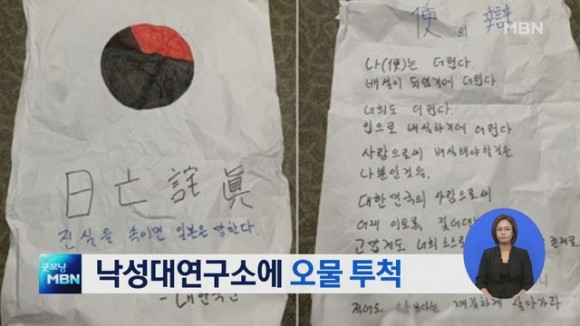 日亡詑眞
진심을 속이면 일본은 망한다.
便의 辯
MBN
나(便)는 더럽다.
배설이 되었기에 더럽다.
너희도 더럽다.
입으로 배설하기에 더럽다.
사람으로써 배설해야할것은
나뿐인것을.
대한민국의 사람으로써
어찌 이토록,
고맙게도 너희
적어도 나보다는 깨끗하게 살아가라
굿모닝
MBN
낙성대연구소에 오물 투척